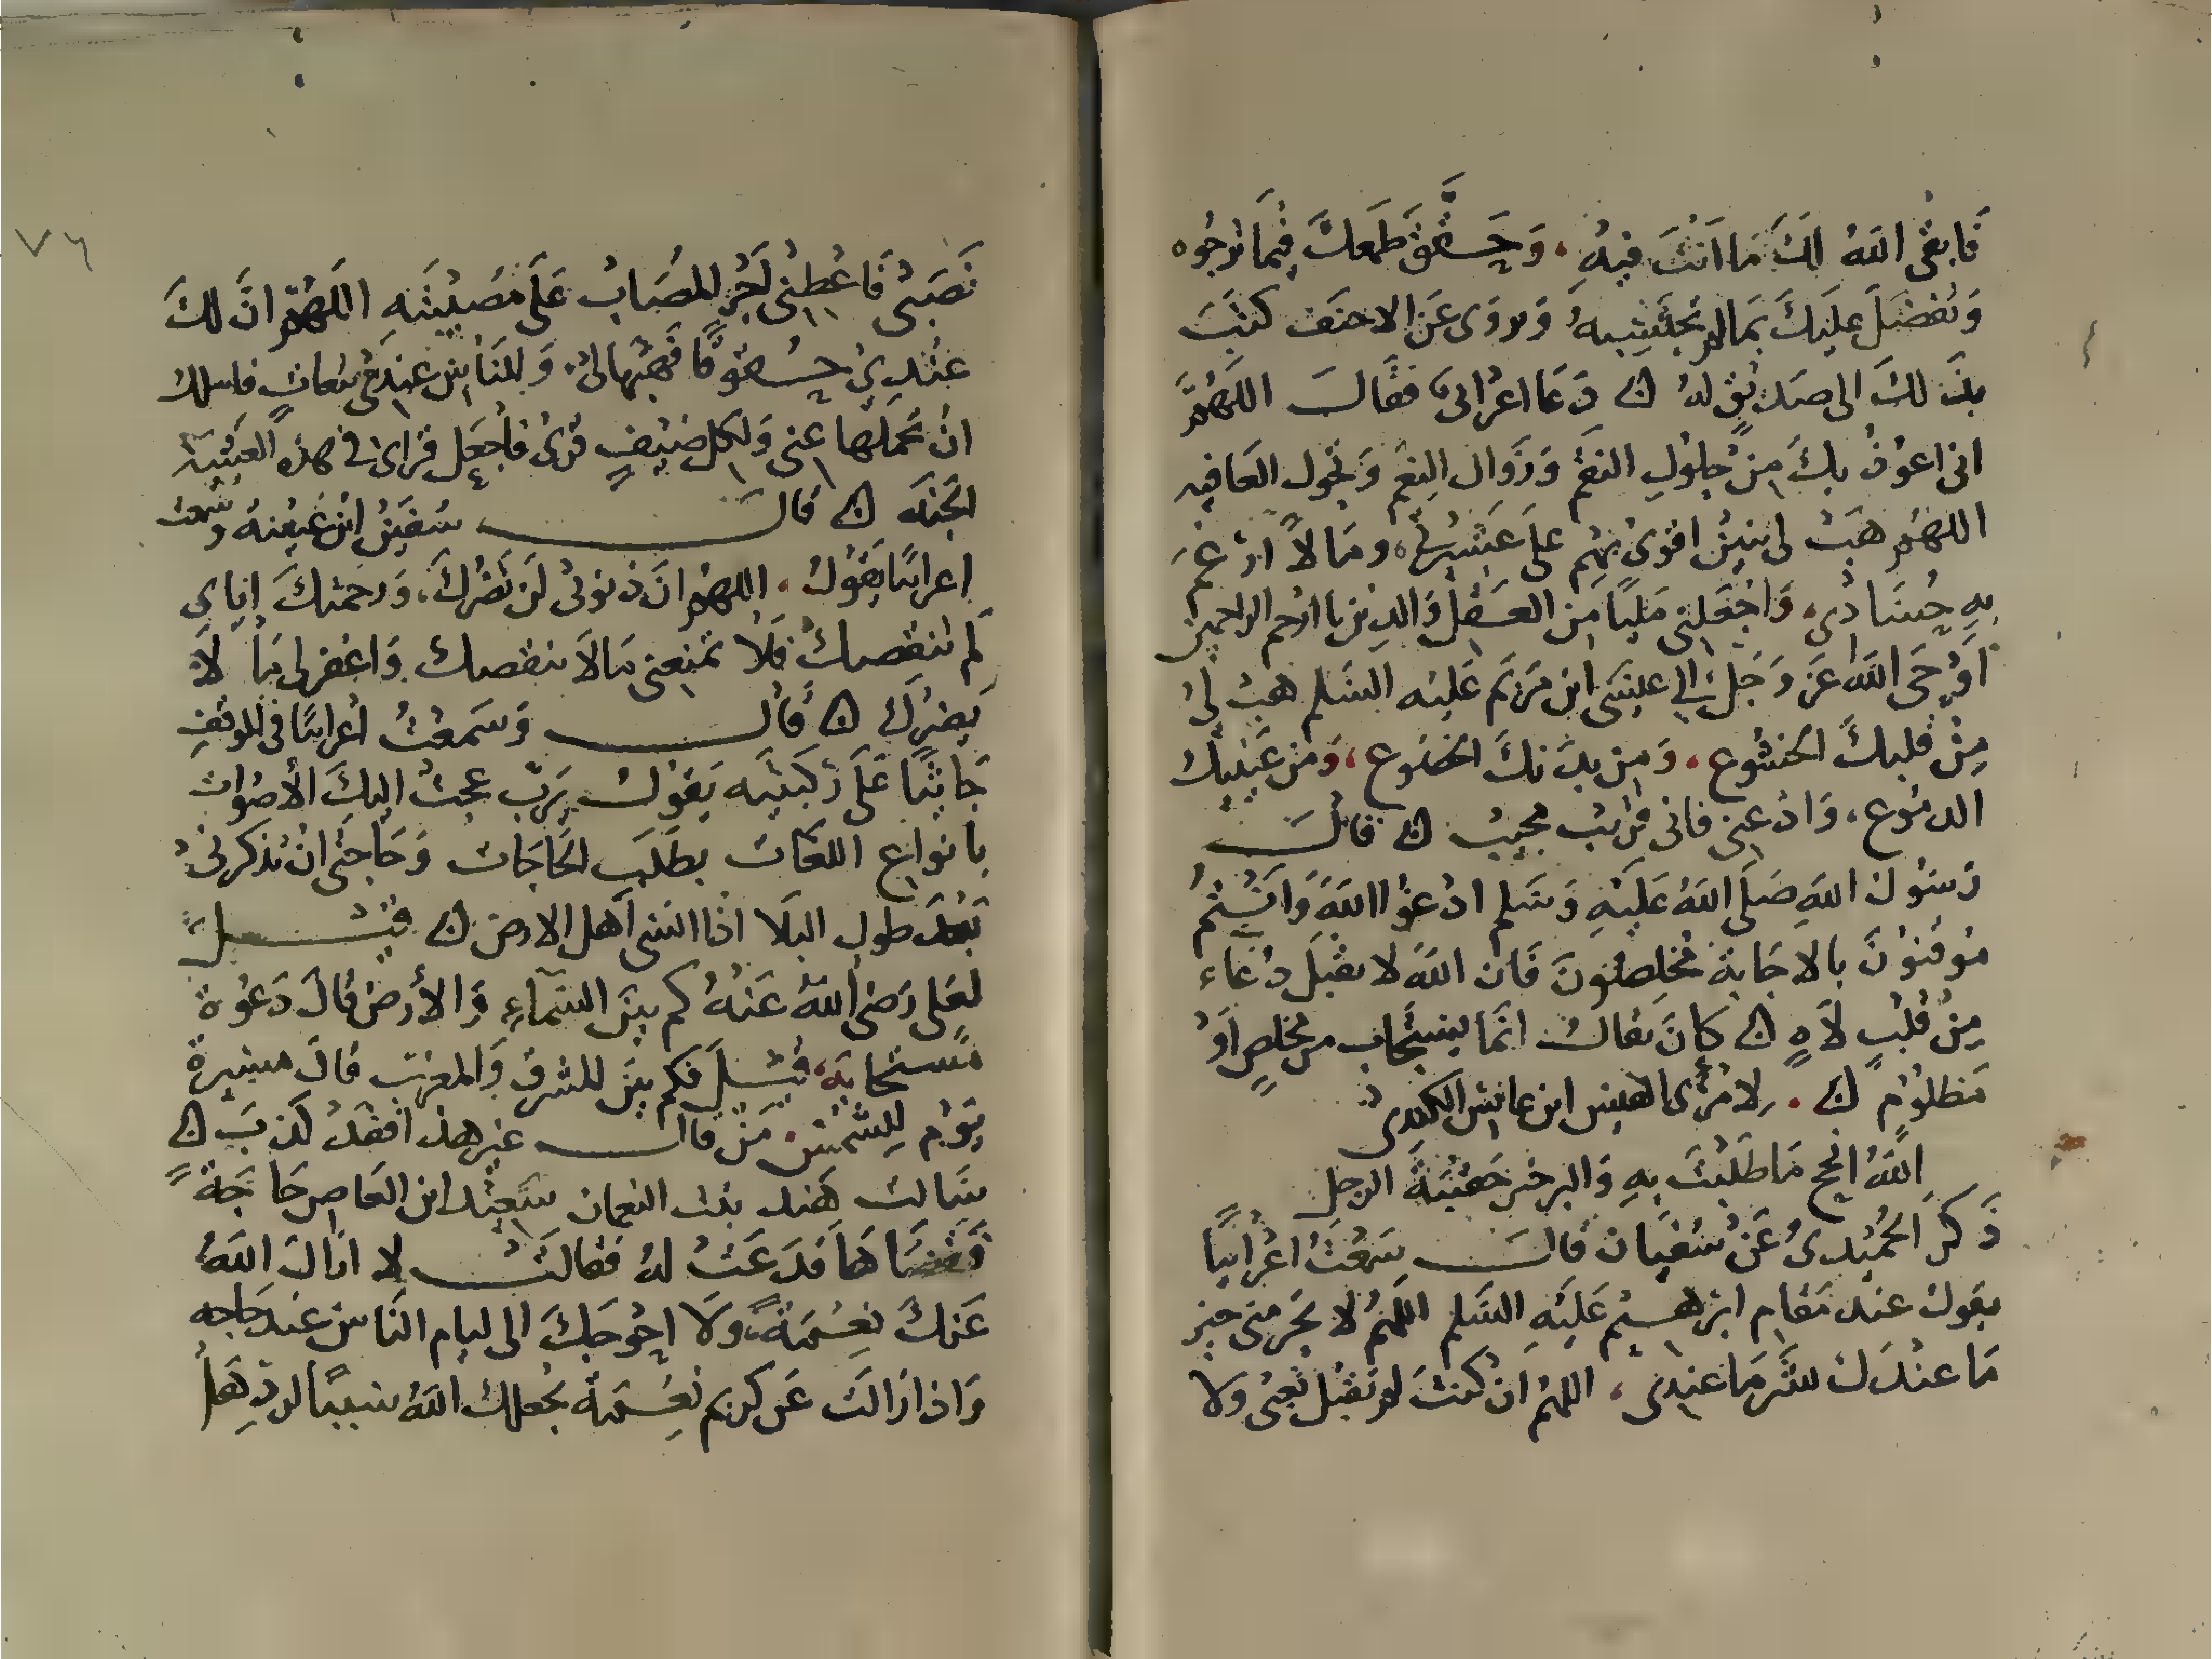 فَابقى اللهُ لكَ مَا اَنتَ فيهِ، وَحَقَّقَ طَمَعكَ فِيمَا ترجُوه
وَتفضَلَ عليكَ بمَا لم تحتَسِبهُ وَروَى عَن الاحنَف كتبَ
بذَلكَ الى صَديقٍ لهُ ۞ دَعَا اعرَابى فقَالَ اللهُمَّ
انى اعوُذُ بكَ مِن حلولِ النقم وَزوَال النِعم وَتحول العَافيه
اللهُم هَبْ لى بنينَ اقوىُ بهِم على عَشيرتى، ومَالاً ارْغم
بهِ حُسَادى، وَاجْعَلنى مَليًا مِن العَقل وَالدِين يا ارْحم الراحمين
اَوحَى اللهُ عَز وَجَل الى عيسَى ابن مَريَم عَليه السَلم هبْ لىْ
مِنْ قلبكَ الخشُوع، وَمِن بدَنكَ الخضُوع، وَمن عَينيكَ
الدمُوع، وَادْعنى فانى قريبْ مجيبْ ۞ قالَ
رَسُولُ اللهِ صَلى اللهُ عَليْهِ وَسَلم ادْعوُا اللهَ وَاَنْتمُ
مُوقنوُنَ بالاجَابة مُخلِصُونَ فَان اللهَ لا يقبَل دُعَاء
مِنْ قلبٍ لاَهٍ ۞ كانَ يقالُ انمَا يستجَاب من مخلصٍ اوْ
مَظلوُم ۞ . لامرئ القيس ابن عابس الكندى
اللهُ انجح مَا طَلبْتَ بهِ وَالبر خير حَقيبَة الرجل
ذَكرَ الحُميْدىُ عَنْ سُفيَان قَالَ سَمعْتُ اعْرَابيًا
يقولُ عندَ مقَام ابرَهيم عَليْهِ السَلم اللهُم لا تحرمنى خير
مَا عنْدَك لشَر مَا عندى، اللهُم اَن كنتَ لم تقبل تعبى ولا
٧٦
نَصَبىْ فَاعْطِنىْ اَجْر المصَاب عَلى مصُيبَتهِ اللهُم انَّ لكَ
عنْدِىْ حُقوُقًا فَهبْهَا لىْ، وَللنَاس عندى تبعَاتٍ فاسلك
انْ تحملهَا عنى وَلكل ضيْفٍ قرىْ فاجْعَل قراى فى هذه العَشيَة
الجنَه ۞ قالَ سُفيَنُ ابن عُيَيْنهُ وسَمعت
اعرابيًا يقوُلُ. اللهُم انَ ذنوبىْ لَن تضُركَ، وَرحمتكَ اياى
لم تنقصكَ فَلا تمنعنى مَالا ينقصك وَاغفر لى مَا لاَ
يَضرك ۞ قَالَ وَسَمعْتُ اعْرابيًا فى الموقفِ
جَاثيًا عَلى رُكبَتيه يَقوُلُ يرَبِ عجتْ اليكَ الأصوات
بانوَاع اللغَات بطَلَب الحَاجَات وَحَاجَتى انْ تذكرنىْ
بَعْدَ طول البَلا اذَا انسَى اَهل الارض ۞ قيْلَ
لعَلى رَضى اللهُ عَنهُ كم بينَ السَماءِ وَالأرضِ قالَ دَعوُة
مُستجابَه، قيْلَ فكم بينَ المشرق وَالمغرب قالَ مسيرة
يَوْم للِشمْس. مَن قال غير هذا فقَدْ كذَبَ ۞
سَالت هَند بنت النعمان سَعيْد ابن العَاص حَاجَةً
فَقضَاهَا فدَعَتْ لهُ فقالَتْ لا ازالَ اللهُ
عَنكَ نعْمَة، ولا احوَجَكَ الى ليام النَاس عَند حَاجه
وَاذا زَالتَ عَن كريم نعْمَة جعلكَ اللهُ سَببًا لردِهَا